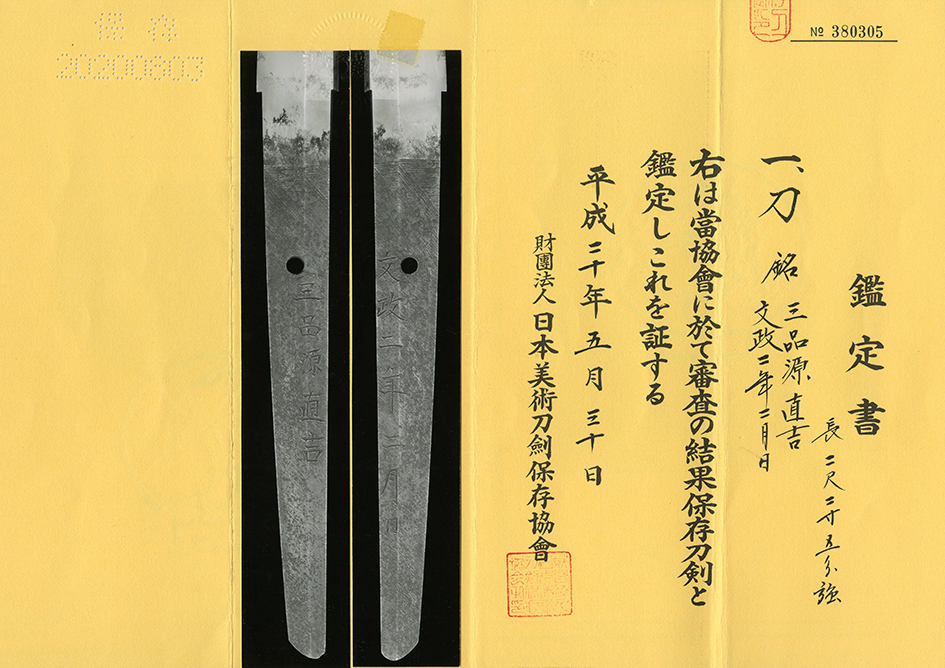 № 380305
鑑定書
一、刀 銘 三品源直吉
文政二年二月日
長二尺二寸五分強
右は當協會に於て審査の結果保存刀剣と
鑑定しこれを証する
平成二十年五月三十日
財團法人日本美術刀劍保存協會
文政二年二月日
三品源直吉
保存
20200803